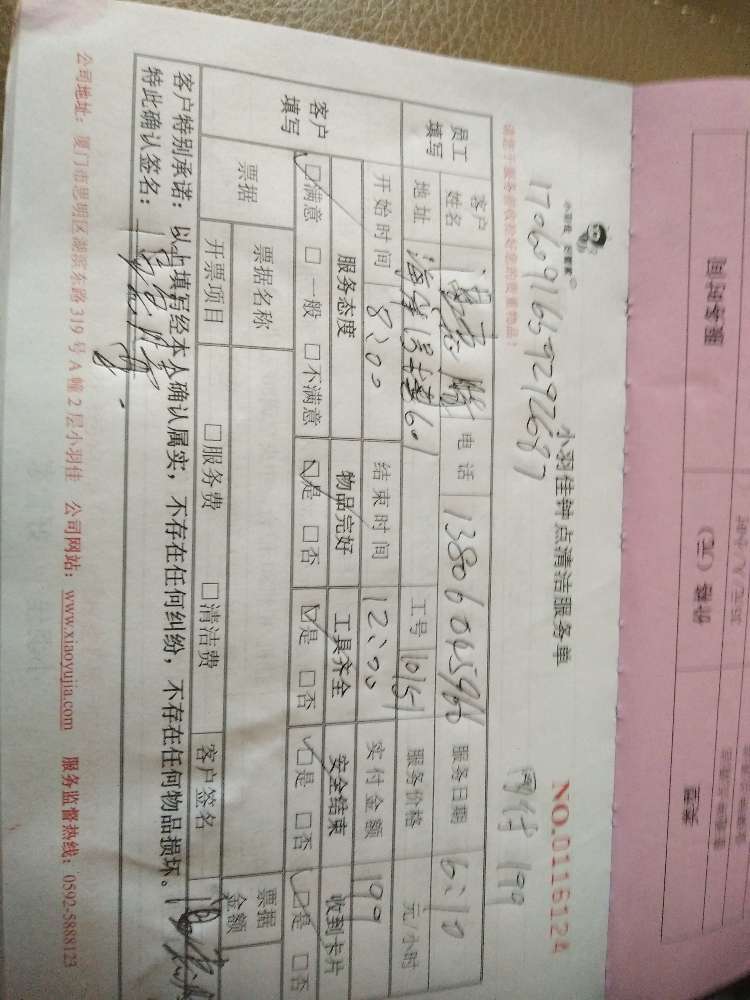 服务时间
价格（元）
类型
小羽佳
170691659292687
小羽佳钟点清洁服务单
网付 199
NO.0116124
请您于服务前收拾好您的贵重物品！
员工填写
客户姓名
电话 13806045960
服务日期 6:10
地址
601
工号 10151
服务价格 元/小时
开始时间 8:00
结束时间 12:00
实付金额 199
客户填写
服务态度
物品完好
工具齐全
安全结束
收到卡片
☑满意 □一般 □不满意
☑是 □否
☑是 □否
☑是 □否
☑是 □否
票据
票据名称
票据金额
开票项目
□服务费
□清洁费
客户签名
客户特别承诺：以上填写经本人确认属实，不存在任何纠纷，不存在任何物品损坏。
特此确认签名：
公司地址：厦门市思明区湖滨东路319号A幢2层小羽佳 公司网站：www.xiaoyujia.com 服务监督热线：0592-5888123